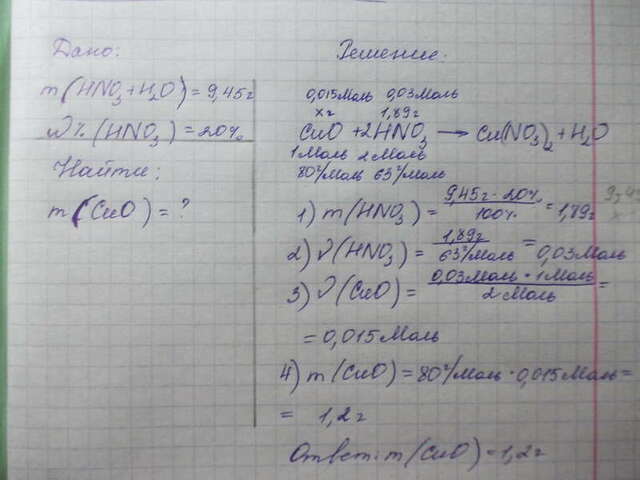 Дано:
m(HNO₃+H₂O)=9,45г
ω%(HNO₃)=20%
Найти:
m(CuO)=?
Решение:
0,015моль 0,03моль
xг 1,89г
CuO+2HNO₃→Cu(NO₃)₂+H₂O
1моль 2моль
80г/моль 63г/моль
1) m(HNO₃)=9,45г·20%/100%=1,89г
2) ν(HNO₃)=1,89г/63г/моль=0,03моль
3) ν(CuO)=0,03моль·1моль/2моль=
=0,015моль
4) m(CuO)=80г/моль·0,015моль=
= 1,2г
Ответ: m(CuO)=1,2г